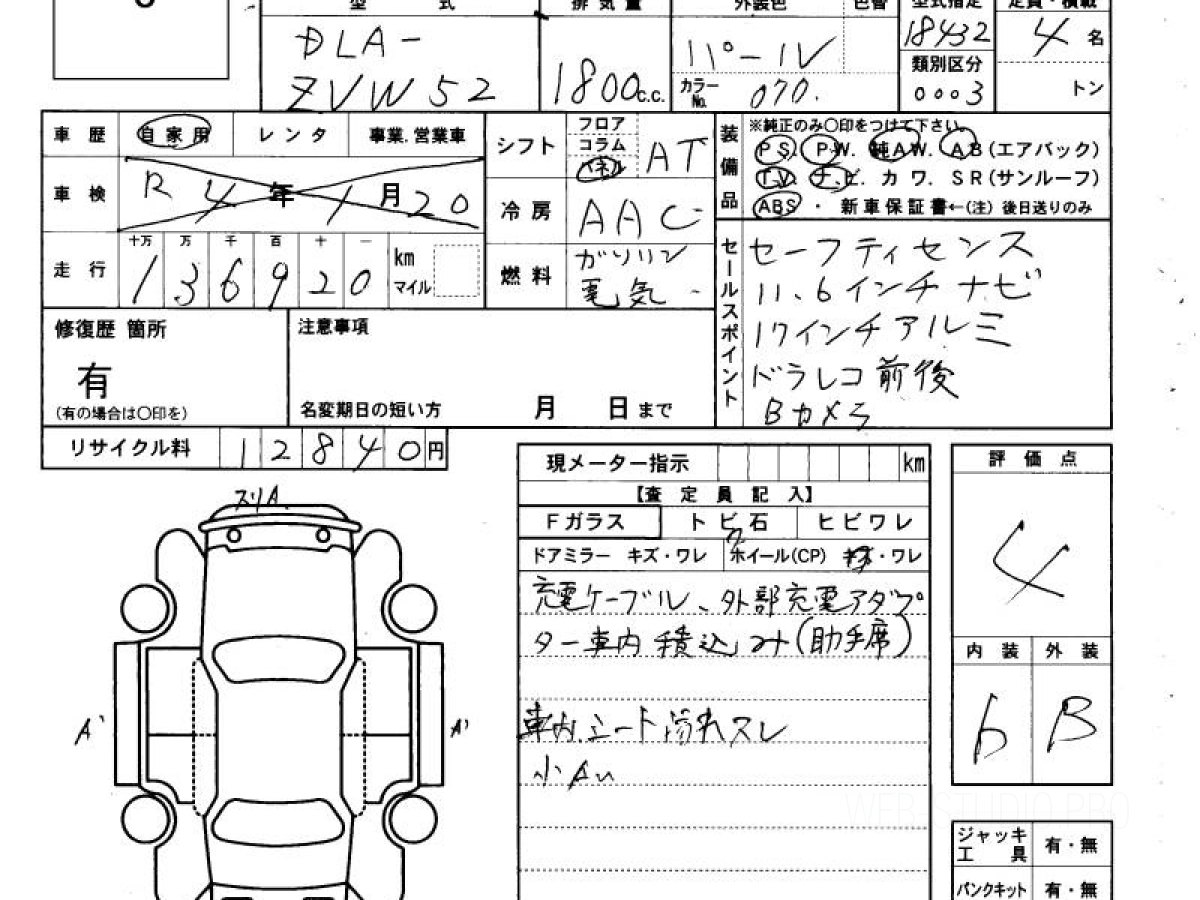 型 式 排気量 外装色 色替 型式指定 定員・積載
DLA-
ZVW52
1800 c.c.
パール
カラーNo. 070.
18432
類別区分
0003
4 名
トン
車 歴 自家用 レンタ 事業.営業車
シフト フロア コラム パネル AT
車 検 R 4 年 1 月 20
冷 房 AAC
走 行 十万 万 千 百 十 一
136920 km マイル
燃 料 ガソリン
電気
装備品
※純正のみ〇印をつけて下さい。
PS. PW. 純AW. AB(エアバック)
TV. ナビ カワ. SR(サンルーフ)
ABS ・ 新車保証書←(注) 後日送りのみ
セールスポイント
セーフティセンス
11.6インチナビ
17インチアルミ
ドラレコ前後
Bカメラ
修復歴 箇所
有
(有の場合は〇印を)
注意事項
名変期日の短い方 月 日 まで
リサイクル料 12840 円
現メーター指示 km
【査 定 員 記 入】
Fガラス トビ石 ヒビワレ
ドアミラー キズ・ワレ ホイール(CP) キズ・ワレ
充電ケーブル、外部充電アダプ
ター車内積込み(助手席)
車内.シート汚れスレ
小A
評 価 点
4
内 装 外 装
b B
スリA.
A' A'
ジャッキ
工 具 有・無
パンクキット 有・無
WEB STUDIO PRO